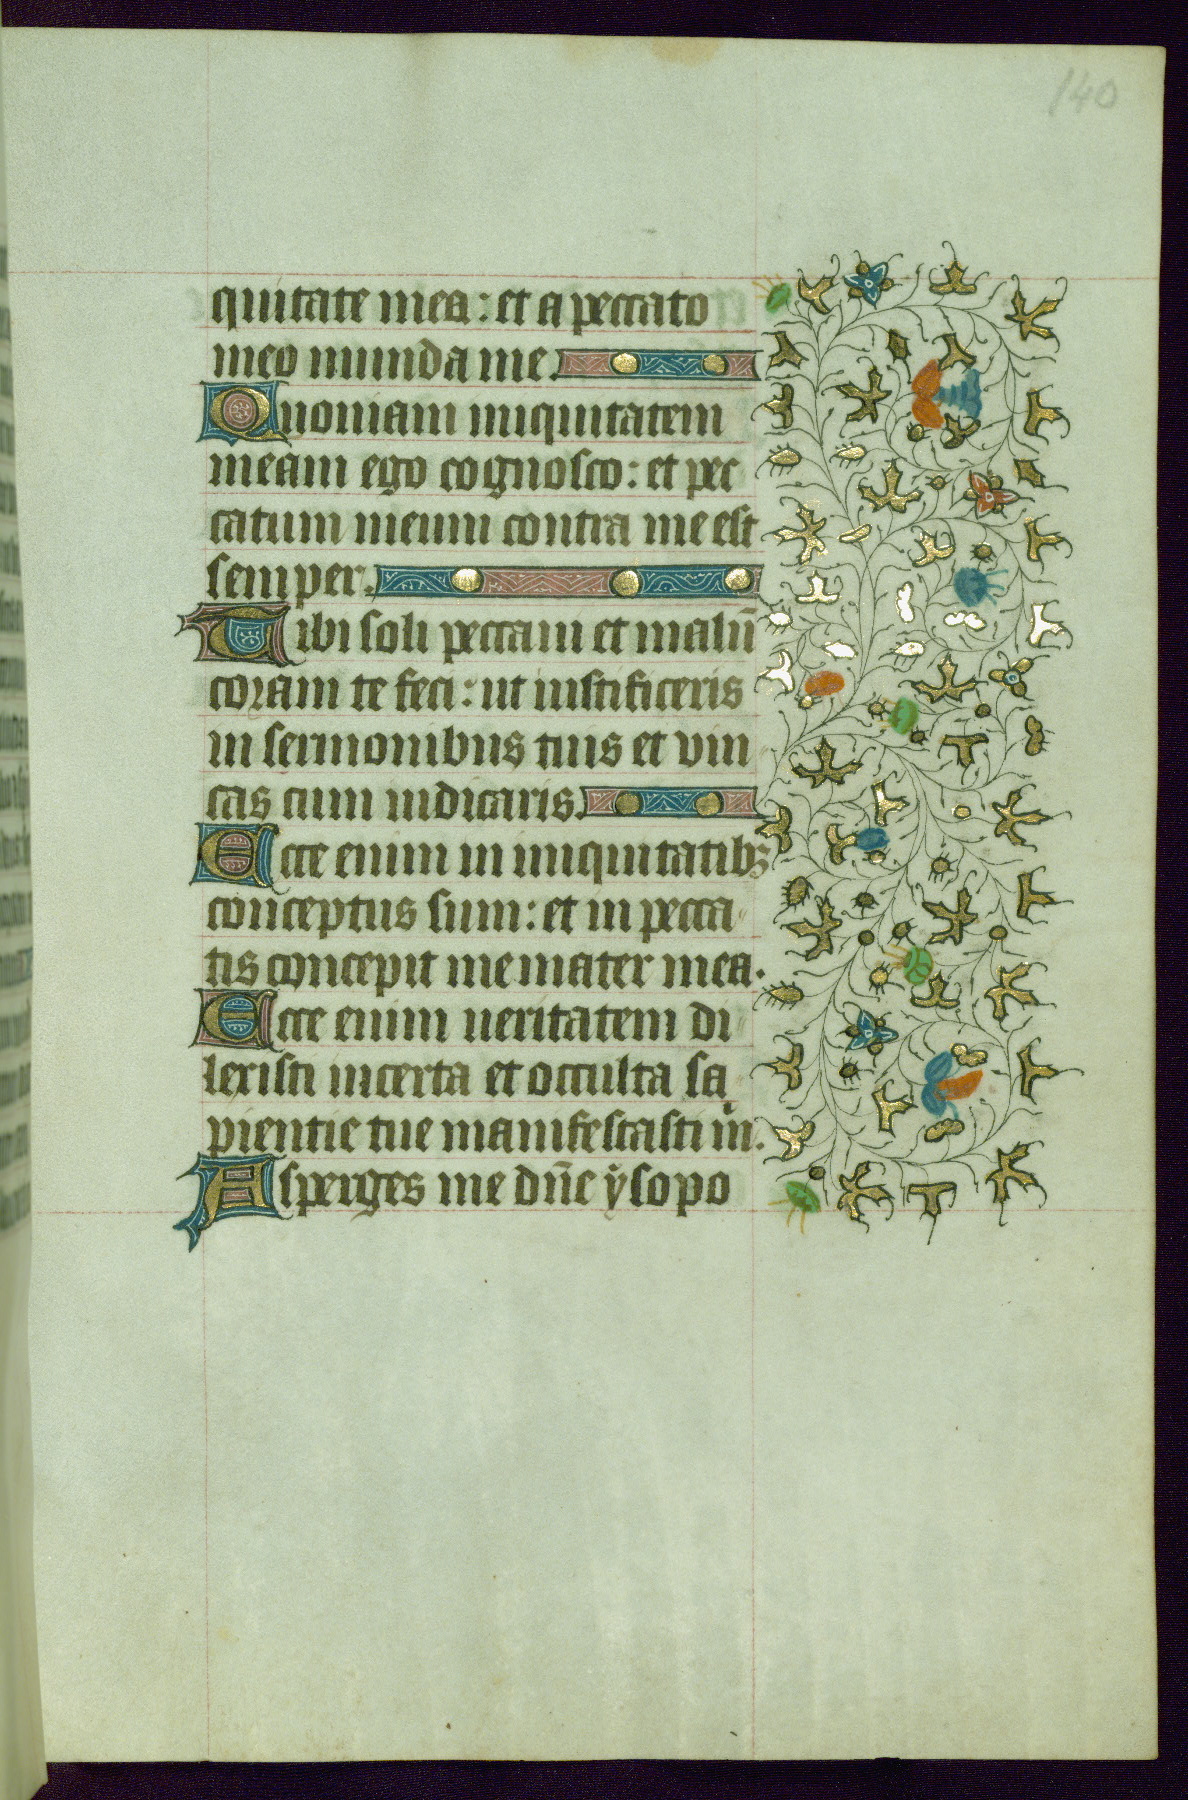 140
quitate mea: et a peccato
meo munda me.
Quoniam iniquitatem
meam ego cognosco: et pec
catum meum contra me est
semper.
Tibi soli peccaui et malū
coram te feci: ut iustificeris
in sermonibus tuis et vin
cas cum iudicaris.
Ecce enim in iniquitatibꝫ
conceptus sum: et in pecca
tis concepit me mater mea.
Ecce enim ueritatem di
lexisti incerta et occulta sa
pientie tue manifestasti m̍.
Asperges me dn̄e ẏsopo